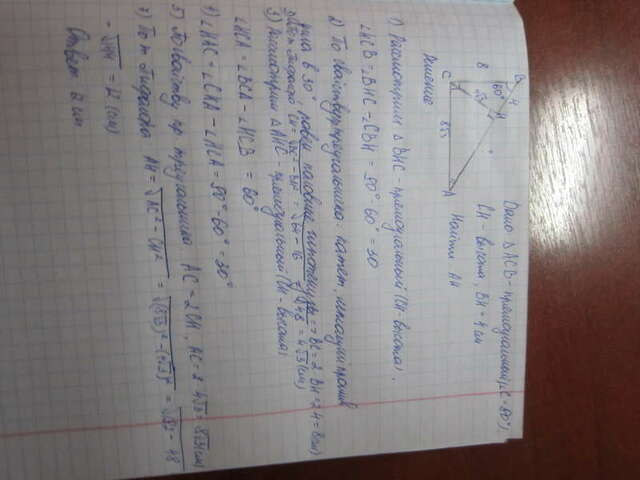 Дано: △ACB - прямоугольный (∠C = 90°),
CH - высота, BH = 4 см
Найти: AH
B
4
60°
H
8
4√3
C
8√3
A
Решение
1) Рассмотрим △BHC - прямоугольный (CH - высота).
∠HCB = ∠BHC - ∠CBH = 90° - 60° = 30
2) По свойству прямоугольника: катет, лежащий против
угла в 30° равен половине гипотенузы => BC = 2 BH = 2·4 = 8 (см)
По т. Пифагора CH = √BC² - BH² = √64 - 16 = √48 = 4√3 (см)
3) Рассмотрим △AHC - прямоугольный (CH - высота)
∠HCA = ∠BCA - ∠HCB = 60°
4) ∠HAC = ∠CHA - ∠HCA = 90° - 60° = 30°
5) По свойству пр. треугольника AC = 2CH, AC = 2·4√3 = 8√3 (см)
7) По т. Пифагора AH = √AC² - CH² = √(8√3)² - (4√3)² = √192 - 48
= √144 = 12 (см)
Ответ: 12 см